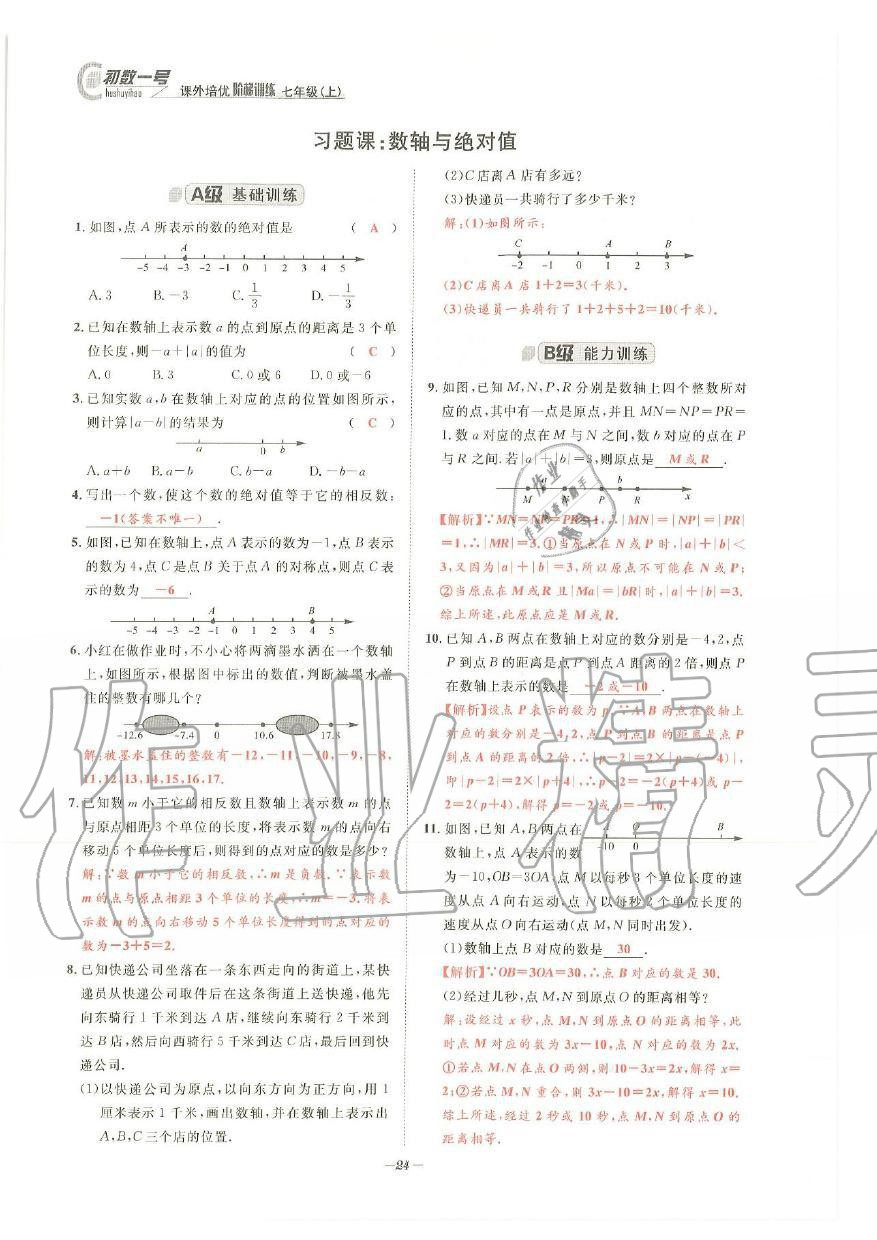 初数一号
chushuyihao
课外培优 阶梯训练 七年级(上)
习题课:数轴与绝对值
A级 基础训练
1.如图,点A所表示的数的绝对值是 ( A )
A
-5 -4 -3 -2 -1 0 1 2 3 4 5
A.3 B.-3 C.1/3 D.-1/3
2.已知在数轴上表示数a的点到原点的距离是3个单
位长度,则-a+|a|的值为 ( C )
A.0 B.3 C.0或6 D.0或-6
3.已知实数a,b在数轴上对应的点的位置如图所示,
则计算|a-b|的结果为 ( C )
a 0 b
A.a+b B.a-b C.b-a D.-b-a
4.写出一个数,使这个数的绝对值等于它的相反数:
-1(答案不唯一) .
5.如图,已知在数轴上,点A表示的数为-1,点B表示
的数为4,点C是点B关于点A的对称点,则点C表
示的数为 -6 .
A B
-5 -4 -3 -2 -1 0 1 2 3 4 5
6.小红在做作业时,不小心将两滴墨水洒在一个数轴
上,如图所示,根据图中标出的数值,判断被墨水盖
住的整数有哪几个?
-12.6 -7.4 0 10.6 17.8
解:被墨水盖住的整数有-12,-11,-10,-9,-8,
11,12,13,14,15,16,17.
7.已知数m小于它的相反数且数轴上表示数m的点
与原点相距3个单位的长度,将表示数m的点向右
移动5个单位长度后,则得到的点对应的数是多少?
解:∵数m小于它的相反数,∴m是负数.∵表示数
m的点与原点相距3个单位的长度,∴m=-3.将表
示数m的点向右移动5个单位长度得到的点对应的
数为-3+5=2.
8.已知快递公司坐落在一条东西走向的街道上,某快
递员从快递公司取件后在这条街道上送快递,他先
向东骑行1千米到达A店,继续向东骑行2千米到达
B店,然后向西骑行5千米到达C店,最后回到快
递公司.
(1)以快递公司为原点,以向东方向为正方向,用1
厘米表示1千米,画出数轴,并在数轴上表示出
A,B,C三个店的位置.
(2)C店离A店有多远?
(3)快递员一共骑行了多少千米?
解:(1)如图所示:
C A B
-2 -1 0 1 2 3
(2)C店离A店1+2=3(千米).
(3)快递员一共骑行了1+2+5+2=10(千米).
B级 能力训练
9.如图,已知M,N,P,R分别是数轴上四个整数所对
应的点,其中有一点是原点,并且MN=NP=PR=
1.数a对应的点在M与N之间,数b对应的点在P
与R之间.若|a|+|b|=3,则原点是 M或R .
a b
M N P R x
【解析】∵MN=NP=PR=1,∴|MN|=|NP|=|PR|
=1,∴|MR|=3.①当原点在N或P时,|a|+|b|<
3,又因为|a|+|b|=3,所以原点不可能在N或P;
②当原点在M或R且|Ma|=|bR|时,|a|+|b|=3.
综上所述,此原点应是M或R.
10.已知A,B两点在数轴上对应的数分别是-4,2,点
P到点B的距离是点P到点A距离的2倍,则点P
在数轴上表示的数是 -2或-10 .
【解析】设点P表示的数为p.∵A,B两点在数轴上
对应的数分别是-4,2,点P到点B的距离是点P
到点A的距离的2倍,∴|p-2|=2×|p-(-4)|,
即|p-2|=2×|p+4|,∴p-2=-2(p+4)或p-
2=2(p+4),解得p=-2或p=-10.
11.如图,已知A,B两点在
A O B
-10 0
数轴上,点A表示的数
为-10,OB=3OA,点M以每秒3个单位长度的速
度从点A向右运动,点N以每秒2个单位长度的
速度从点O向右运动(点M,N同时出发).
(1)数轴上点B对应的数是 30 .
【解析】∵OB=3OA=30,∴点B对应的数是30.
(2)经过几秒,点M,N到原点O的距离相等?
解:设经过x秒,点M,N到原点O的距离相等,此
时点M对应的数为3x-10,点N对应的数为2x.
①若点M,N在点O两侧,则10-3x=2x,解得x=
2;②若点M,N重合,则3x-10=2x,解得x=10.
综上所述,经过2秒或10秒,点M,N到原点O的
距离相等.
—24—
作业精灵